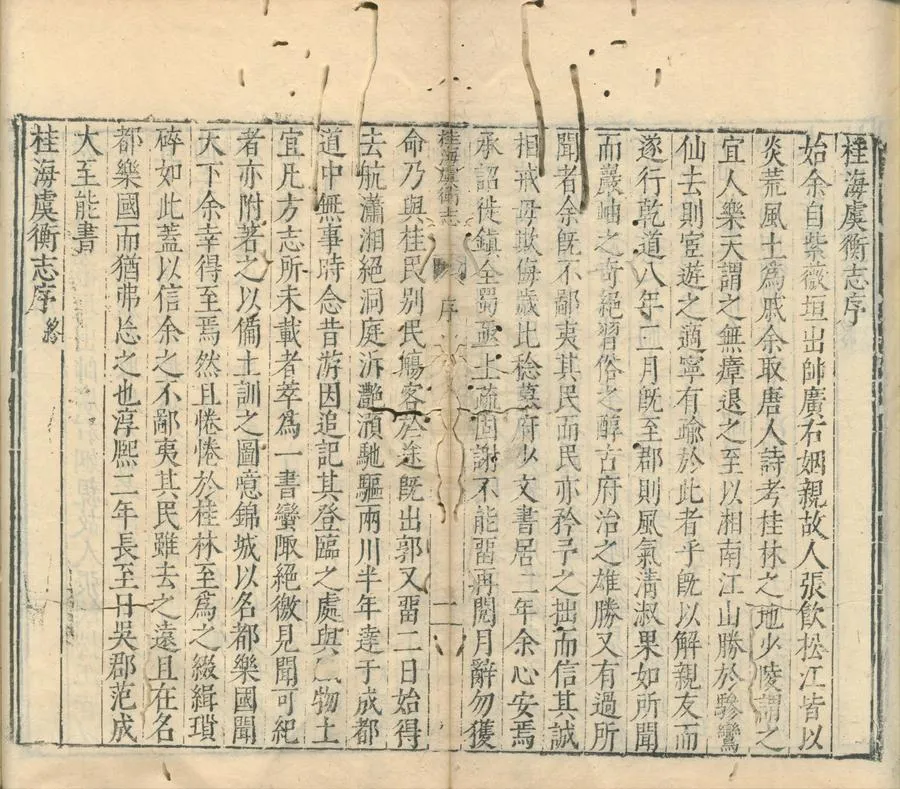 桂海虞衡志序
始余自紫薇垣出帥廣右姻親故人張飲松江皆以
炎荒風土爲戚余取唐人詩考桂林之地少陵謂之
宜人樂天謂之無瘴退之至以湘南江山勝於驂鸞
仙去則宦遊之適寧有踰於此者乎旣以解親友而
遂行乾道八年三月旣至郡則風氣清淑果如所聞
而巖岫之奇絕習俗之醇古府治之雄勝又有過所
聞者余旣不鄙夷其民而民亦矜予之拙而信其誠
相戒毋欺侮歲比稔幕府少文書居二年余心安焉
承詔徙鎮全蜀亟上疏固謝不能畱再閱月辭勿獲
桂海虞衡志 序 二
命乃與桂民别民觴客於途旣出郭又畱二日始得
去航瀟湘絕洞庭泝灩澦馳驅兩川半年達于成都
道中無事時念昔游因追記其登臨之處與物土
宜凡方志所未載者萃爲一書蠻陬絕徼見聞可紀
者亦附著之以備土訓之圖噫錦城以名都樂國聞
天下余幸得至焉然且惓惓於桂林至爲之綴緝瑣
碎如此蓋以信余之不鄙夷其民雖去之遠且在名
都樂國而猶弗忘之也淳熙二年長至日吳郡范成
大至能書
桂海虞衡志序終